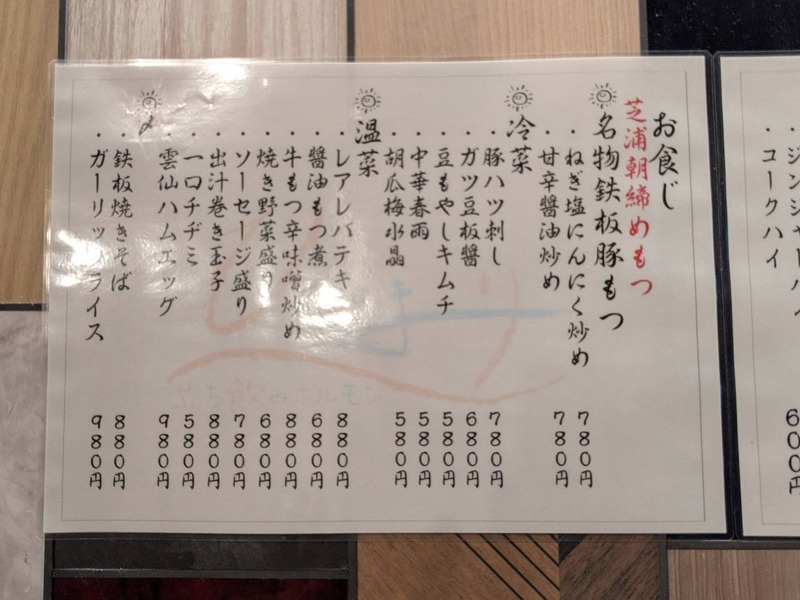 お食じ
芝浦朝締めもつ
名物鉄板豚もつ
・ねぎ塩にんにく炒め 780円
・甘辛醤油炒め 780円
冷菜
・豚ハツ刺し 780円
・ガツ豆板醤 680円
・豆もやしキムチ 580円
・中華春雨 580円
・胡瓜梅水晶 580円
温菜
・レアレバテキ 880円
・醬油もつ煮 680円
・牛もつ辛味噌炒め 880円
・焼き野菜盛り 680円
・ソーセージ盛り 780円
・出汁巻き玉子 880円
・一口チヂミ 580円
・雲仙ハムエッグ 980円
〆
・鉄板焼きそば 880円
・ガーリックライス 980円
立ち飲みホルモン
・コークハイ
600円